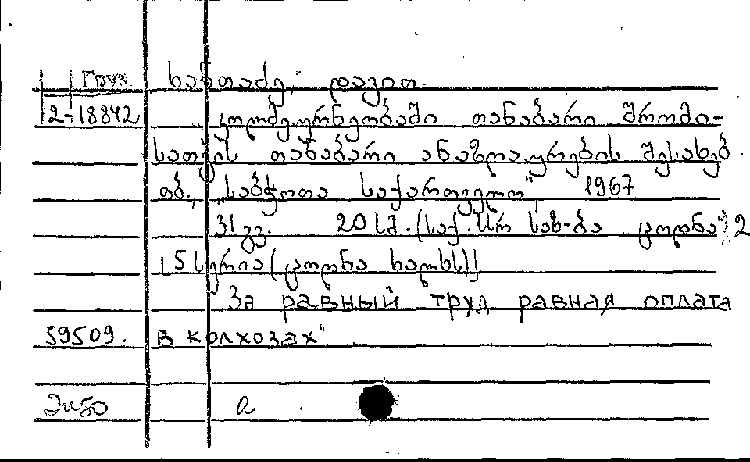 Груз. ხართაძე, დავით.
2-18842 კოლმეურნეობაში თანაბარი შრომი-
სათვის თანაბარი ანაზღაურების შესახებ.
თბ., „საბჭოთა საქართველო", 1967
31 გვ. 20 სმ. (საქ. სსრ საზ-ბა „ცოდნა" 2
15 სერია (ცოდნა ხალხს))
За равный труд равная оплата
59509. в колхозах"
a